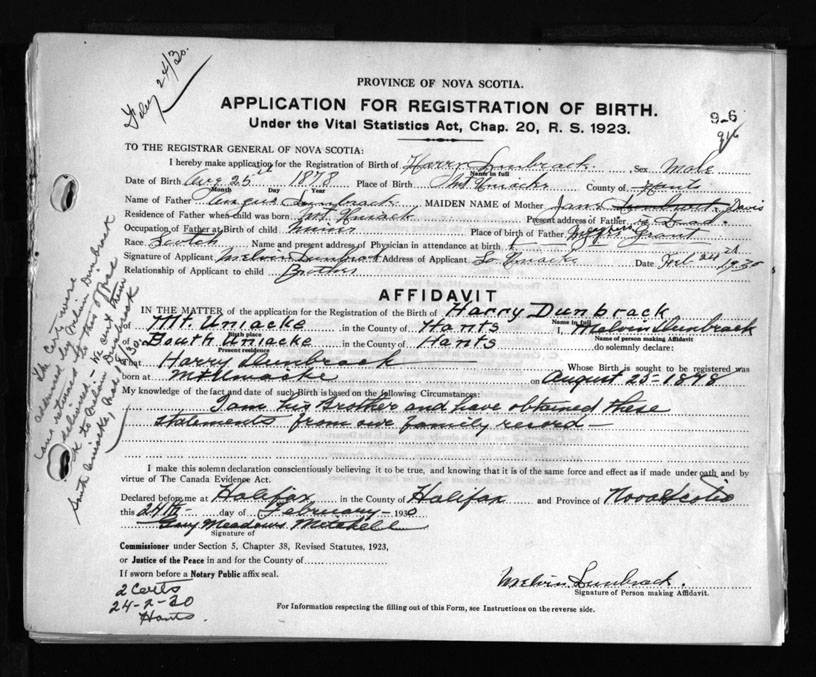 Feby 24/30.
PROVINCE OF NOVA SCOTIA.
APPLICATION FOR REGISTRATION OF BIRTH.
Under the Vital Statistics Act, Chap. 20, R. S. 1923.
9-6
TO THE REGISTRAR GENERAL OF NOVA SCOTIA:
I hereby make application for the Registration of Birth of Harry Dunbrack Sex Male
Name in full
Date of Birth Aug 25th 1878 Place of Birth Mt Uniacke County of Hants
Month Day Year
Name of Father Angus Dunbrack MAIDEN NAME of Mother Jane Davis
Residence of Father when child was born Mt Uniack Present address of Father is Dead.
Occupation of Father at Birth of child miner Place of birth of Father Meyers Grant
Race Scotch Name and present address of Physician in attendance at birth
Signature of Applicant Melvin Dunbrack Address of Applicant So Uniacke Date Feb 24 1930
Relationship of Applicant to child Brother
AFFIDAVIT
IN THE MATTER of the application for the Registration of the Birth of Harry Dunbrack
Name in full
of Mt. Uniacke in the County of Hants I, Melvin Dunbrack
Birth place
Name of person making Affidavit
of South Uniacke in the County of Hants do solemnly declare:
Present residence
that Harry Dunbrack Whose Birth is sought to be registered was
born at Mt Uniacke on August 25-1878
My knowledge of the fact and date of such Birth is based on the following Circumstances:
I am his Brother and have obtained these
statements from our family record-
I make this solemn declaration conscientiously believing it to be true, and knowing that it is of the same force and effect as if made under oath and by
virtue of The Canada Evidence Act.
Declared before me at Halifax in the County of Halifax and Province of Nova Scotia
this 24th- day of February- 1930
Guy Meadows Mitchell
Signature of
Commissioner under Section 5, Chapter 38, Revised Statutes, 1923,
or Justice of the Peace in and for the County of
If sworn before a Notary Public affix seal.
2 Certs
24-2-30
Hants.
Melvin Dunbrack.
Signature of Person making Affidavit.
For Information respecting the filling out of this Form, see Instructions on the reverse side.
The Certs were
addressed by Melvin Dunbrack
were returned to this office